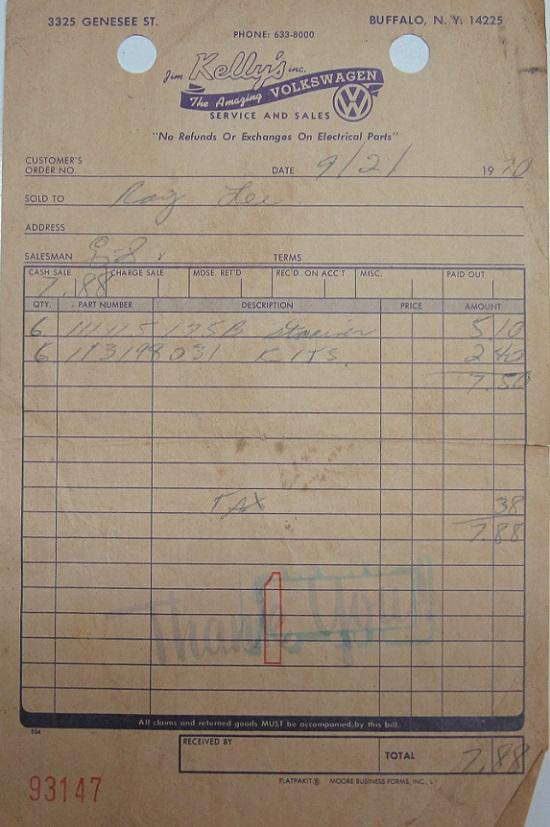 3325 GENESEE ST. BUFFALO, N. Y. 14225
PHONE: 633-8000
Jim Kelly's inc.
The Amazing VOLKSWAGEN
SERVICE AND SALES
"No Refunds Or Exchanges On Electrical Parts"
CUSTOMER'S
ORDER NO. DATE 9/21 1970
SOLD TO Ray Lee
ADDRESS
SALESMAN TERMS
CASH SALE CHARGE SALE MDSE. RET'D REC'D. ON ACC'T MISC. PAID OUT
7.88
QTY. PART NUMBER DESCRIPTION PRICE AMOUNT
6 111 115 175B Strainer 5 10
6 113198031 KITS. 2 40
7.50
TAX 38
7.88
Thank You
All claims and returned goods MUST be accompanied by this bill.
554
RECEIVED BY TOTAL 7.88
93147
FLATPAKIT® MOORE BUSINESS FORMS, INC., L